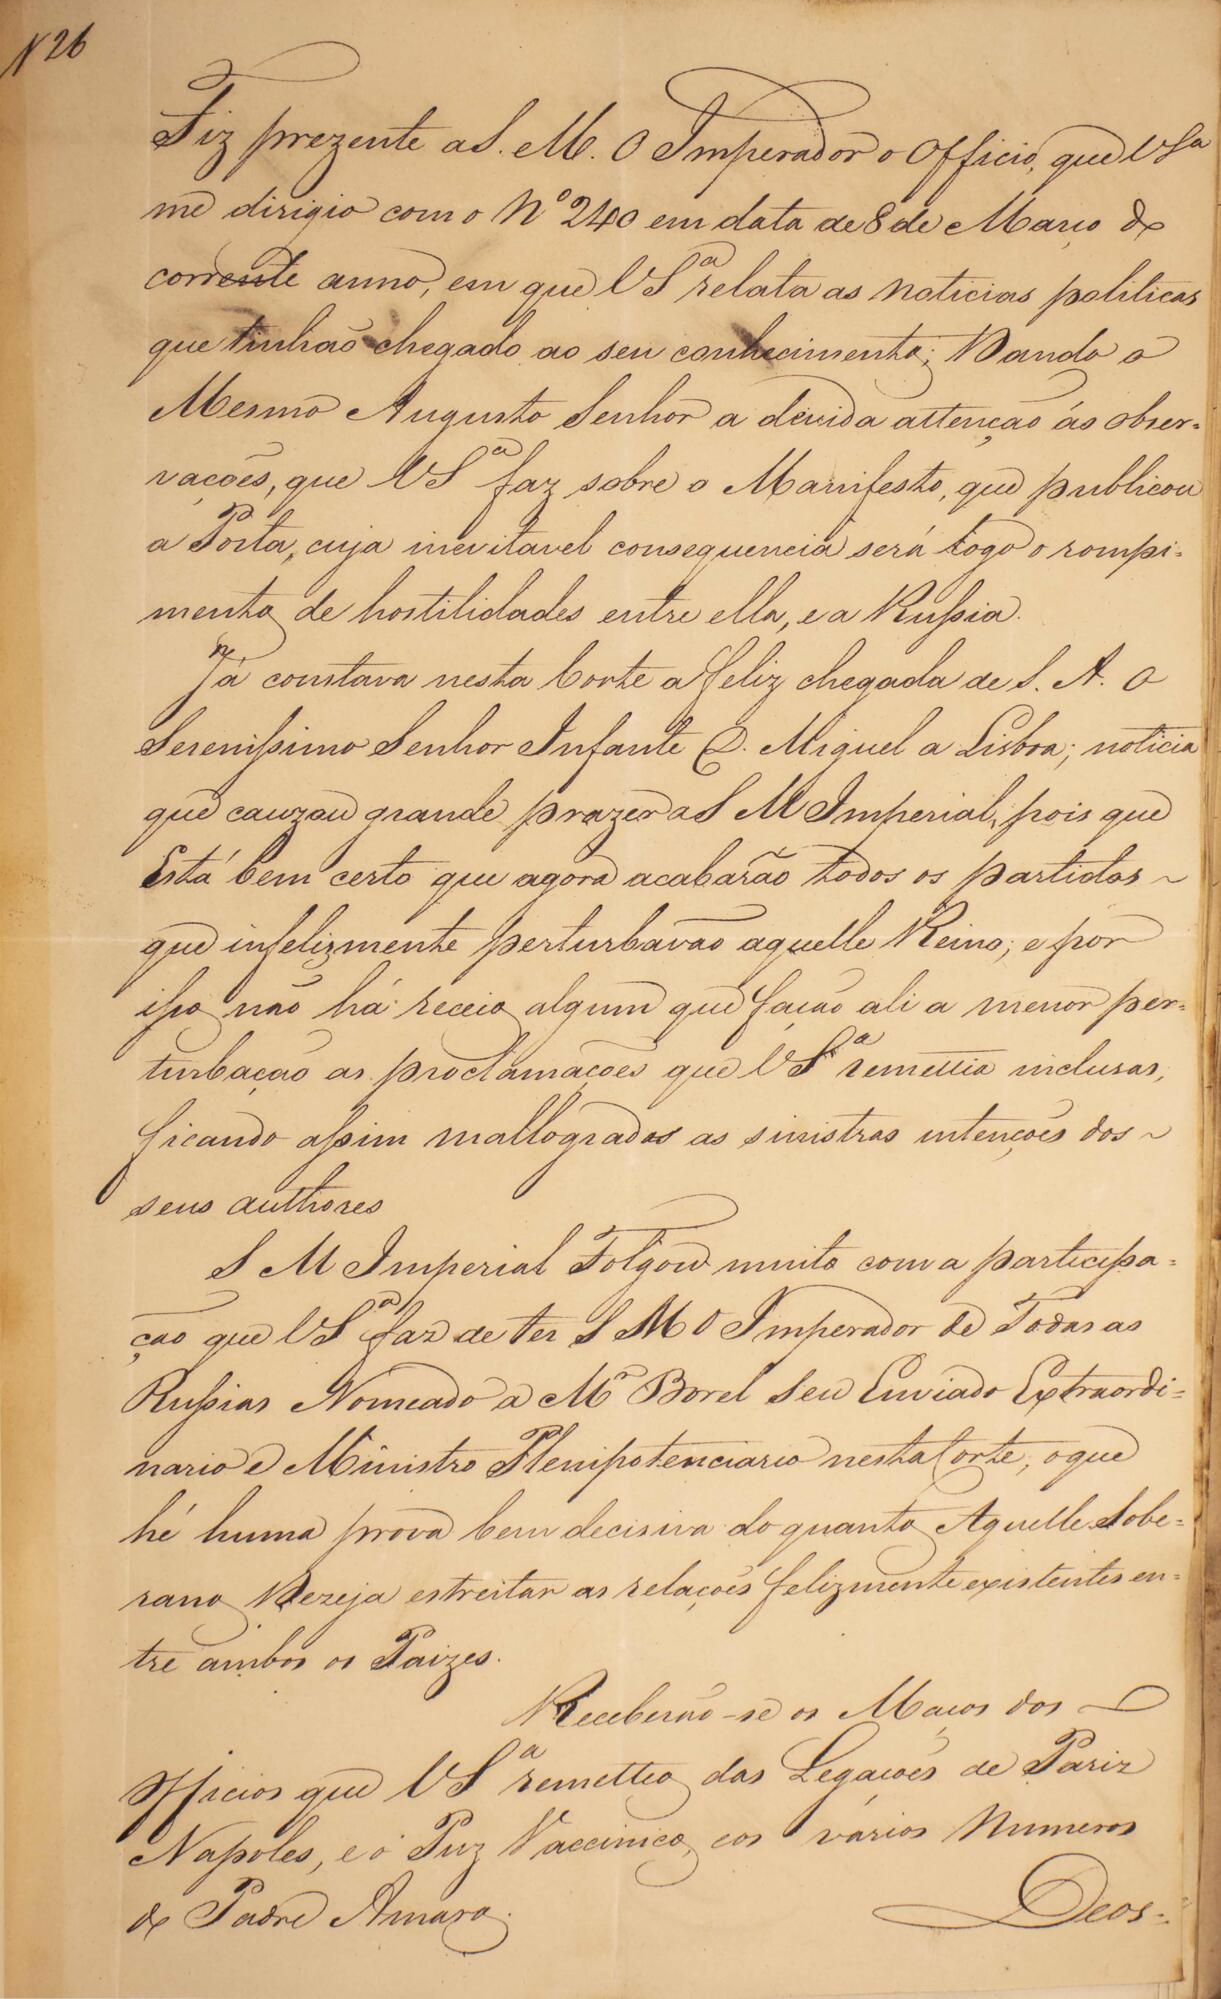 N 26
Fiz prezente a S. M. O Imperador o Officio, que V Sª
me dirigio com o Nº 240 em data de 8 de Março do
corrente anno, em que V Sª relata as noticias politicas
que tinhão chegado ao seu conhecimento; Dando o
Mesmo Augusto Senhor a devida attenção ás obser-
vações, que V Sª faz sobre o Manifesto, que publicou
a Porta, cuja inevitavel consequencia será logo o rompi-
mento de hostilidades entre ella, e a Russia.
Já constava nesta Corte a feliz chegada de S. A. O
Serenissimo Senhor Infante D. Miguel a Lisboa; noticia
que cauzou grande prazer a S M Imperial, pois que
Está bem certo que agora acabarão todos os partidos
que infelizmente perturbavão aquelle Reino; e por
isso não há receio algum que fação ali a menor per-
turbação as proclamações que V Sª remettia inclusas,
ficando assim mallogradas as sinistras intenções dos
seus authores
S M Imperial Folgou muito com a participa-
ção que V Sª faz de ter S M O Imperador de Todas as
Russias Nomeado a Mr Borel Seu Enviado Extraordi-
nario e Ministro Plenipotenciario nesta Corte, o que
hé huma prova bem decisiva do quanto Aquelle Sobe-
rano Dezeja estreitar as relações felizmente existentes en-
tre ambos os Paizes.
Receberão-se os Maços dos
Officios que V Sª remetteo das Legações de Pariz
Napoles, e o Puz Vaccinico, e os vários Numeros
do Padre Amaro.
Deos-